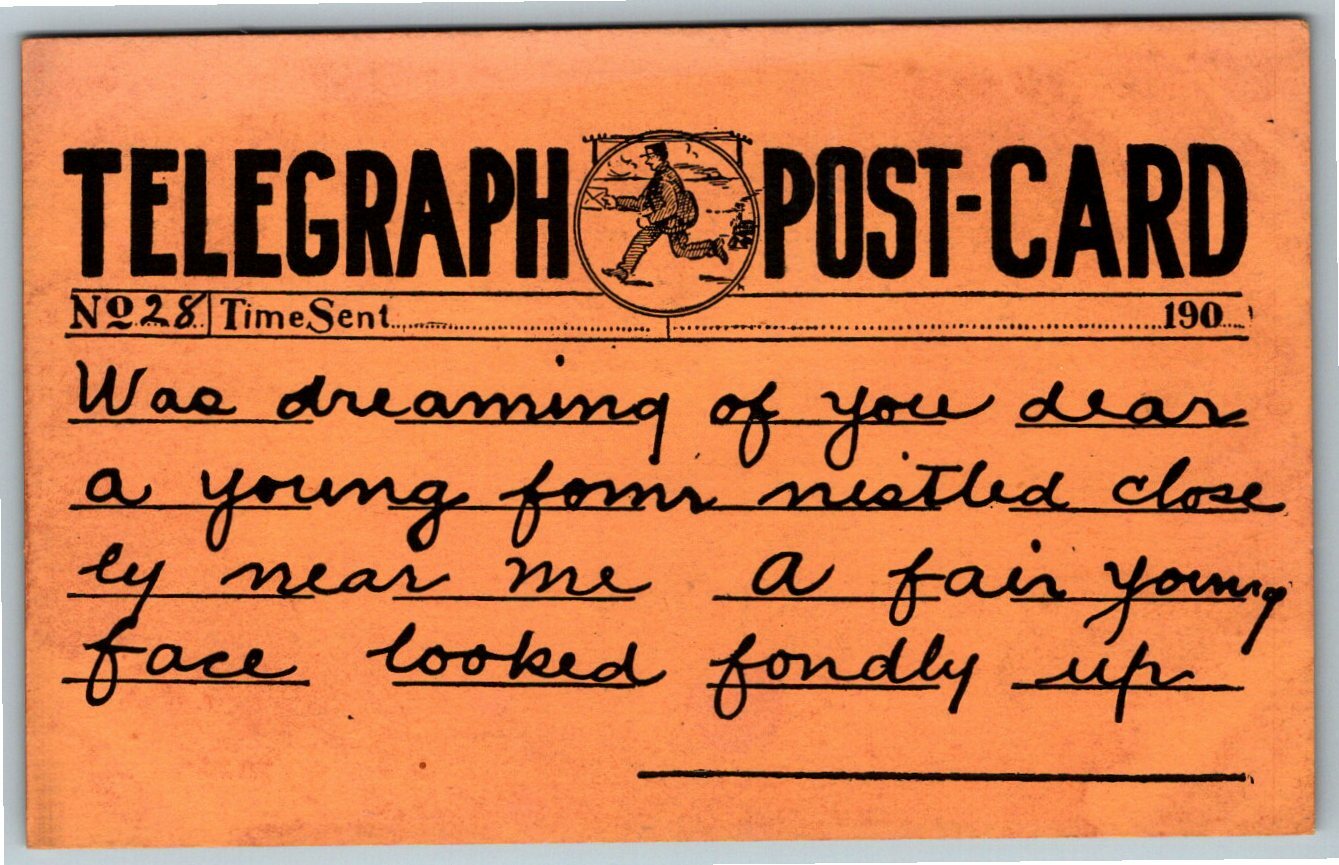 TELEGRAPH POST-CARD
No 28 Time Sent 190
Was dreaming of you dear
a young form nestled close
ly near me a fair young
face looked fondly up